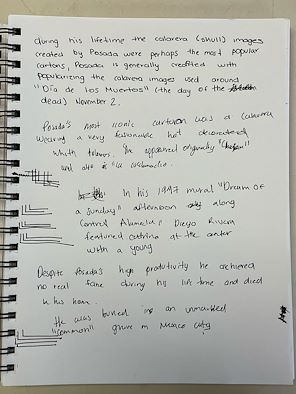 during his lifetime the calavera (skull) images
created by Posada were perhaps the most popular
cartons, Posada is generally credited with
popularizing the calavera images used around
"Día de los Muertos" (the day of the
dead) November 2.
Posada's most iconic cartoon was a calavera
wearing a very fashionable hat decorated
whith She appeared originally
and also is "la
In his 1947 mural "Dream of
a Sunday" afternoon along
Central Alameda" Diego Rivera
featured catrina at the center
with a young
Despite Posada's high produtivity he achieved
no real fame during his life time and died
in his home.
He was buried in an unmarked
"common" grave in Mexico City